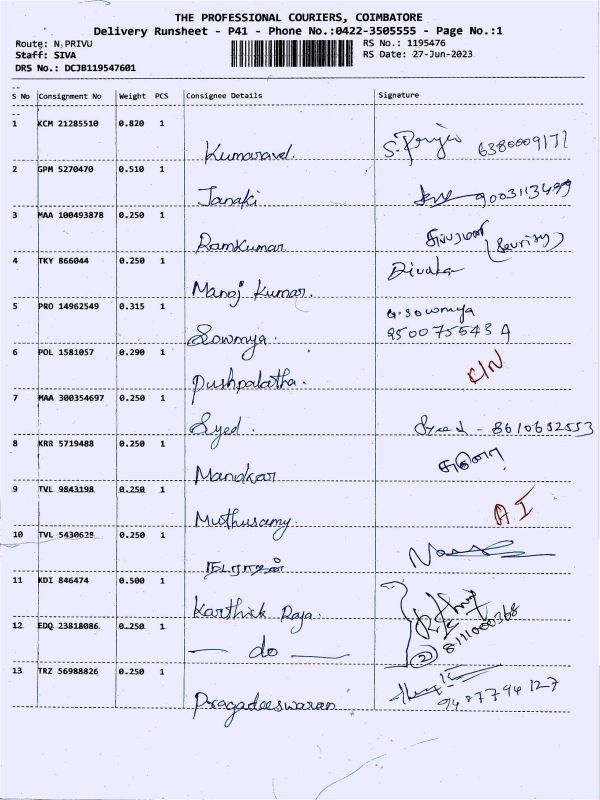 THE PROFESSIONAL COURIERS, COIMBATORE
Delivery Runsheet - P41 - Phone No.:0422-3505555 - Page No.:1
Route: N.PRIVU RS No.: 1195476
Staff: SIVA RS Date: 27-Jun-2023
DRS No.: DCJB119547601
S No Consignment No Weight PCS Consignee Details Signature
1 KCM 21285510 0.820 1
Kumaravel. 6380009177
2 GPM 5270470 0.510 1
Janaki 9003113499
3 MAA 100493878 0.250 1
Ramkumar
4 TKY 866044 0.250 1
Manoj Kumar. Divakar
5 PRO 14962549 0.315 1 G.Sowmya
Sowmya. 950075543 A
6 POL 1581057 0.290 1
Pushpalatha.
7 MAA 300354697 0.250 1
Syed. Syed - 8610652553
8 KRR 5719488 0.250 1
Manokar
9 TVL 9843198 0.250 1
Muthusamy. A I
10 TVL 5430628 0.250 1
நடராஜன்
11 KDI 846474 0.500 1
Karthick Raja.
12 EDQ 23818086 0.250 1 8111000368
— do — 2
13 TRZ 56988826 0.250 1
Pragadeeswaran 9487794127